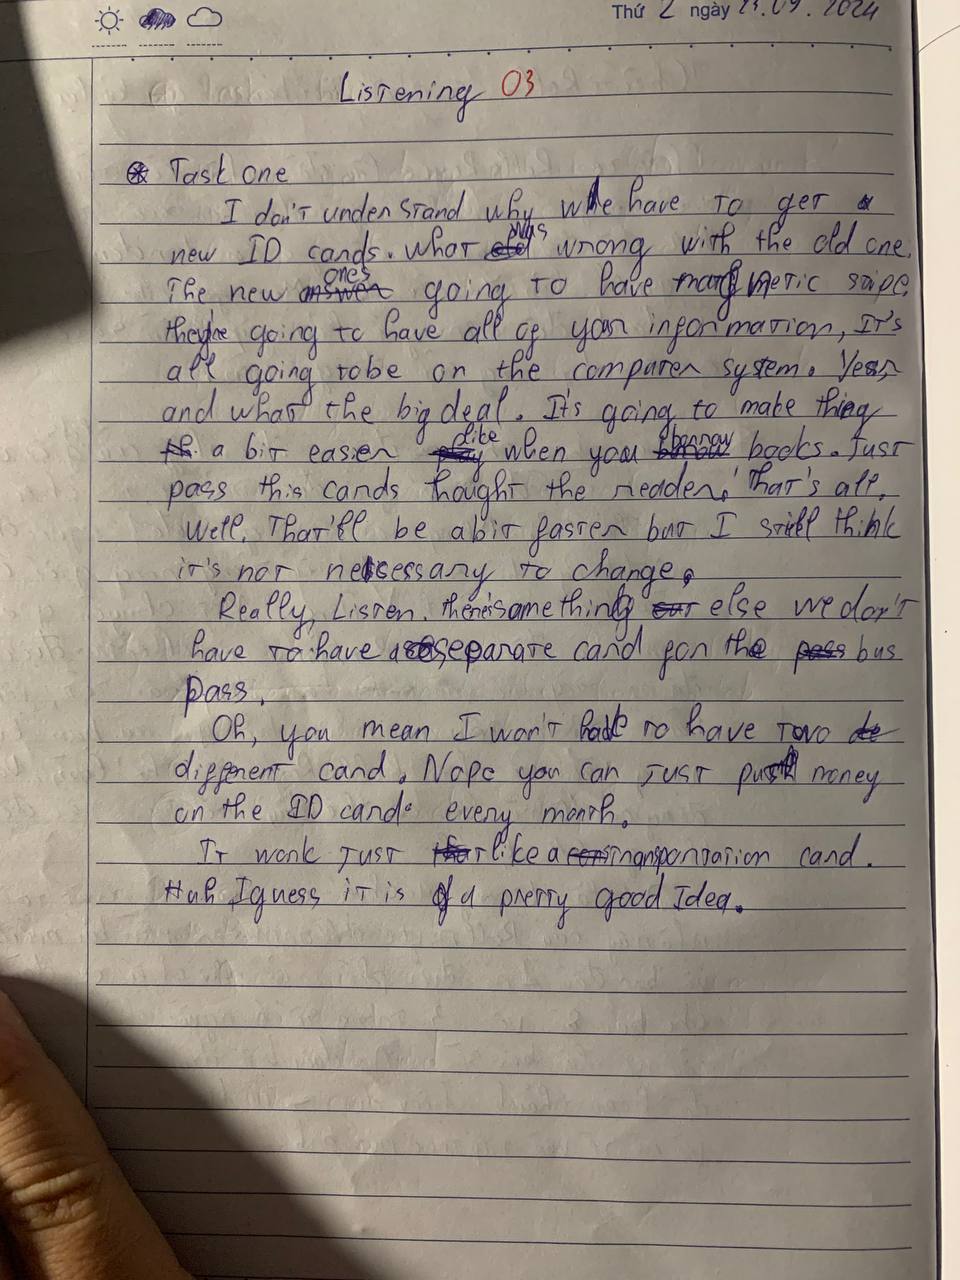 Thứ 2 ngày 23.09.2024
Listening 03
Task one
I don't understand why we have to get a
new ID cards. What was wrong with the old one.
The new ones going to have magnetic stipe,
they're going to have all of your information, It's
all going to be on the computer system. Yes,
and what the big deal. It's going to make thing
a bit easier like when you borrow books. Just
pass this cards thought the reader, That's all.
Well, That'll be a bit faster but I still think
it's not necessary to change.
Really, Listen. there's something else we don't
have to have a separate card for the bus
pass.
Oh, you mean I won't have to have two
different card. Nope you can just put money
on the ID card every month.
It work just like a transportation card.
Huh I guess it is a pretty good Idea.